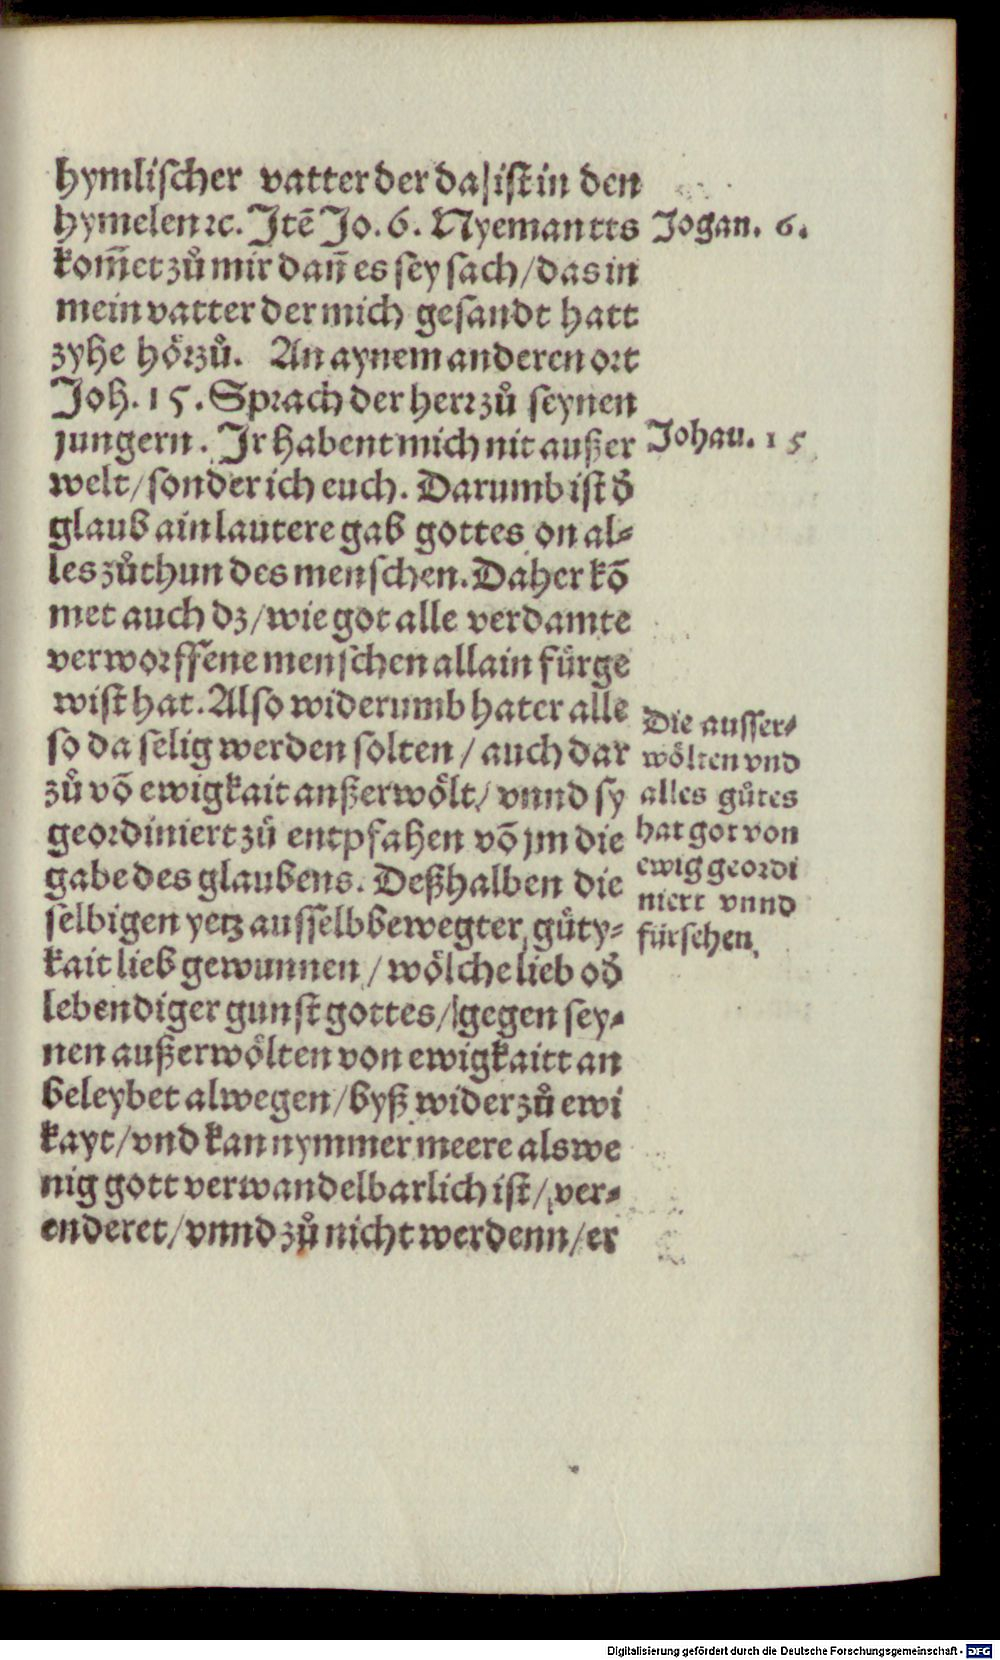 hymlischer vatter der da ist in den
hymelen ꝛc. Jtē Jo. 6. Nyemantts
kom̄et zů mir dan̄ es sey sach / das in
mein vatter der mich gesandt hatt
zyhe hoͤr zů. An aynem anderen ort
Joh. 15. Sprach der herr zů seynen
jungern. Jr habent mich nit außer
welt / sonder ich euch. Darumb ist d̓
glaub ain lautere gab gottes on al⸗
les zůthun des menschen. Daher kō
met auch dz / wie got alle verdamte
verworffene menschen allain fürge
wist hat. Also widerumb hat er alle
so da selig werden solten / auch dar
zů vō ewigkait außerwoͤlt / vnnd sy
geordiniert zů entpfahen vō jm die
gabe des glaubens. Deßhalben die
selbigen yetz aus selbbewegter guͤty⸗
kait lieb gewunnen / woͤlche lieb od̓
lebendiger gunst gottes / gegen sey⸗
nen außerwoͤlten von ewigkaitt an
beleybet alwegen / byß wider zů ewi
kayt / vnd kan nymmer meere als we
nig gott verwandelbarlich ist / ver⸗
enderet / vnnd zů nicht werdenn / er
Jogan. 6.
Johan. 15
Die ausser⸗
woͤlten vnd
alles gůtes
hat got von
ewig geordi
niert vnnd
fürsehen.
Digitalisierung gefördert durch die Deutsche Forschungsgemeinschaft - DFG